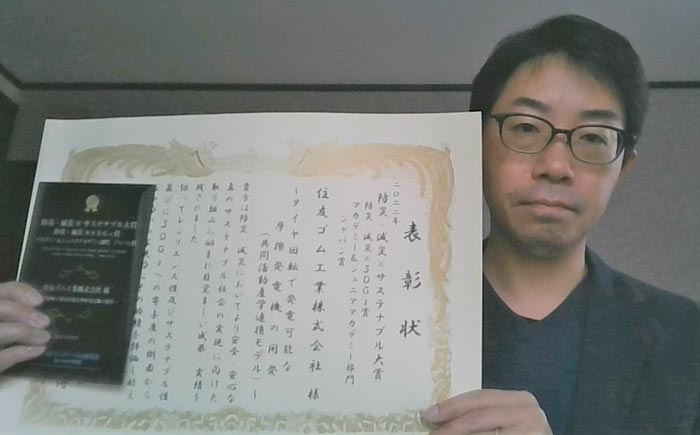 表彰状
二〇二二年
防災・減災×サステナブル大賞
防災・減災×SDGs賞
アカデミー&ジュニアアカデミー部門
ジャパン賞
住友ゴム工業株式会社 様
～タイヤ回転で発電可能な
摩擦発電機の開発
(共同活動産学連携モデル)～
貴方は防災、減災においてより安全・安心な
真のサステナブル社会の実現に向けた
取り組みに励まれ目覚ましい成果・実績を
残されました
依ってレジリエンス性及びサステナブル性
並びにSDGsへの寄与度の側面から
防災・減災×サステナブル大賞
防災・減災×SDGs賞
住友ゴム工業株式会社 様